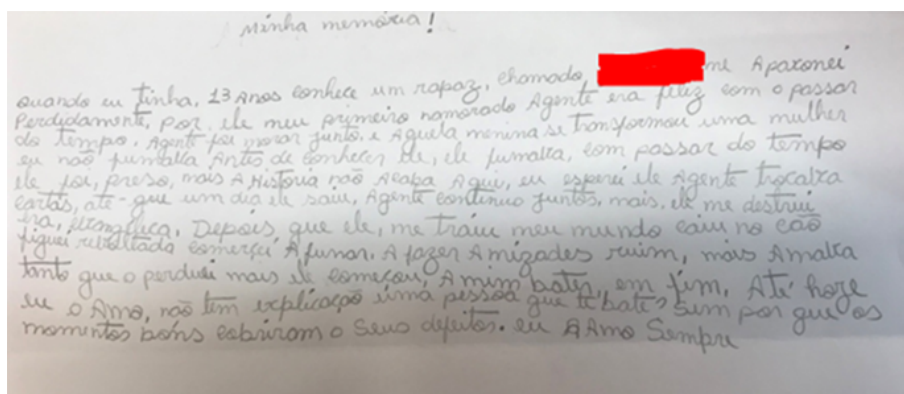 Minha memória!
Quando eu tinha, 13 Anos conhece um rapaz, chamado, me Apaxonei
Perdidamente, por, ele meu primeiro namorado Agente era feliz com o passar
do tempo. Agente foi morar junto. e Aquela menina se transformou uma mulher
eu não fumalta Antes de conhecer ele, ele fumalta, com passar do tempo
ele foi, preso, mais A Historia não Acaba Aqui, eu esperei ele Agente trocalta
cartas, até-que um dia ele saiu, Agente continuo juntos, mais, ele me destrui
era, Depois, que ele, me traiu meu mundo caiu no cão
fiquei reboltada comerçei A fumar. A fazer Amizades ruim, mais Amalta
tanto que o perduei mais ele começou, A mim bater, em fim, Até hoze
eu o Amo, não tem explicação uma pessoa que te bate, sim por que os
momentos bons cobriram o Seus defeitos. eu A Amo Sempre